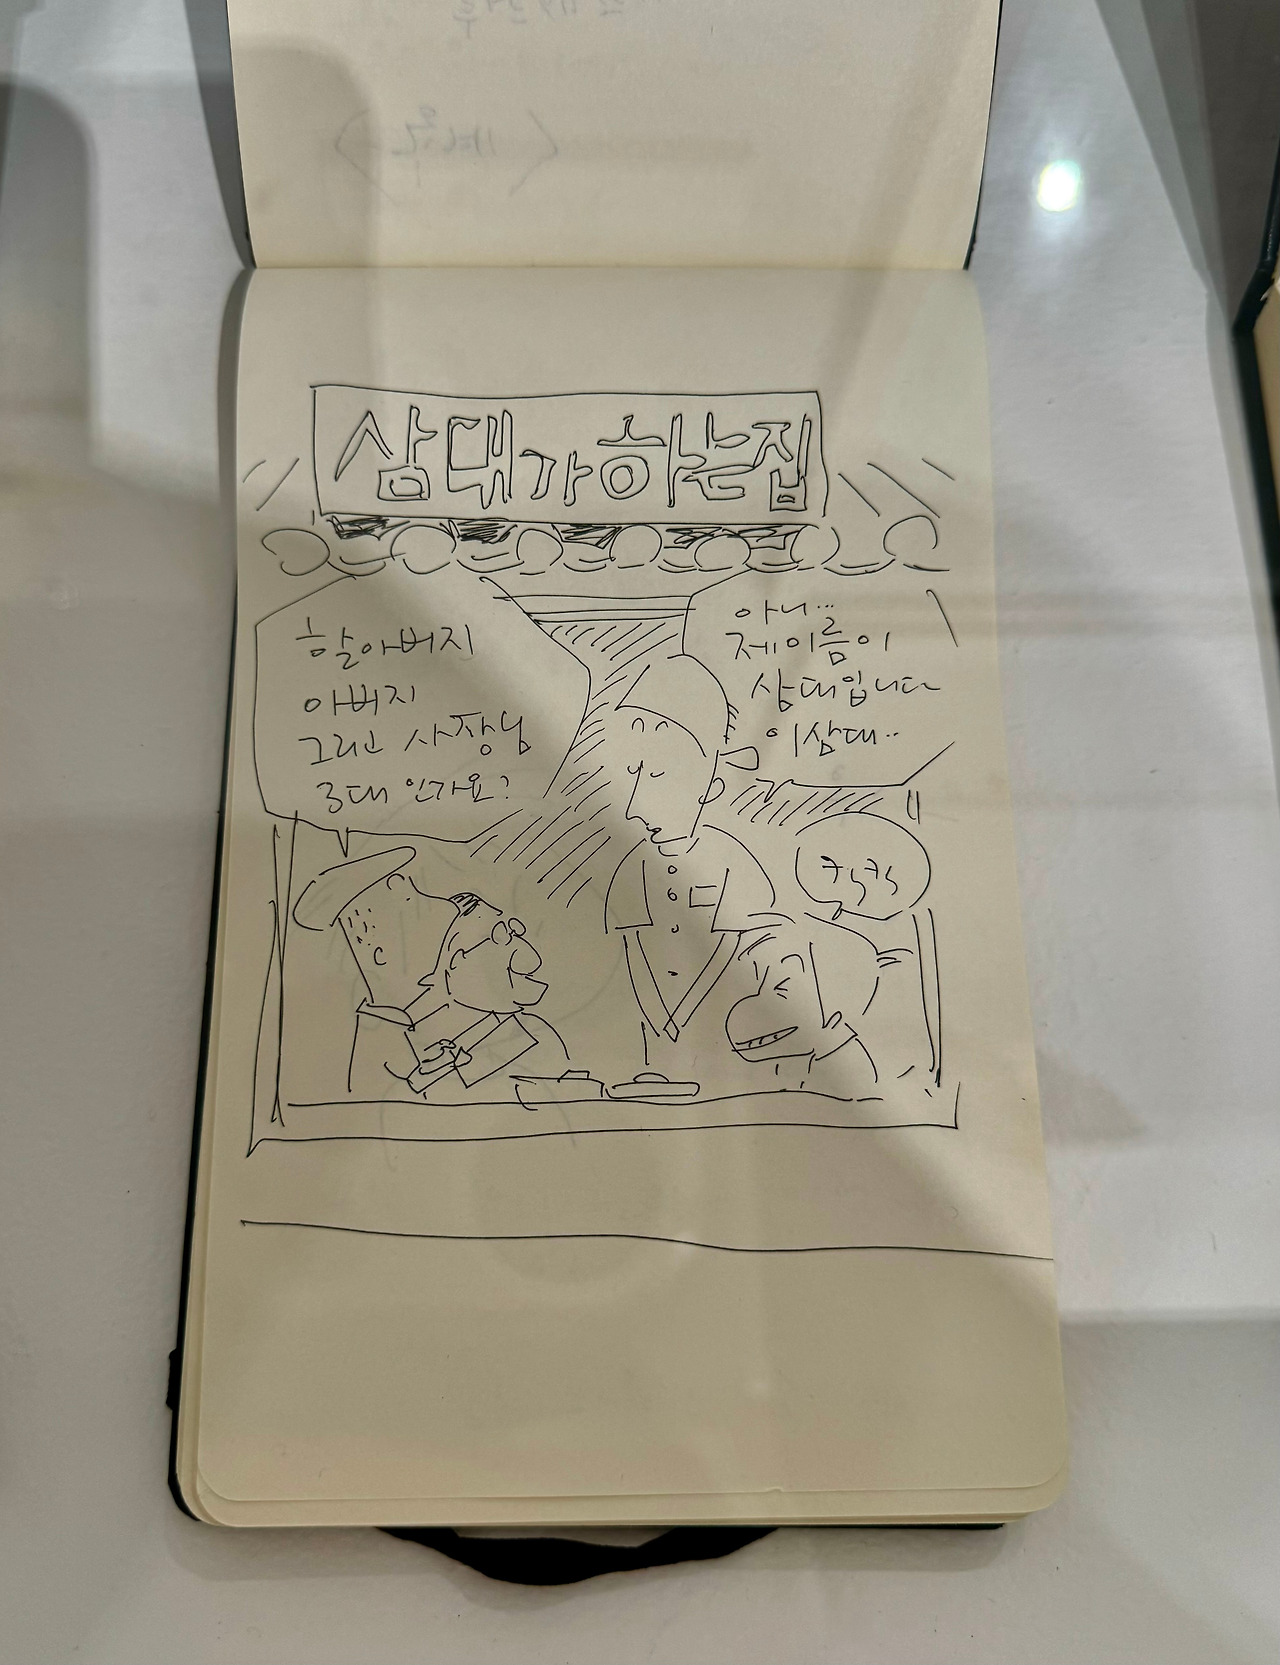 삼대가하는집
할아버지
아버지
그리고 사장님
3대 인가요?
아니...
제이름이
삼대입니다
이삼대..
ㅋㅋㅋㅋ